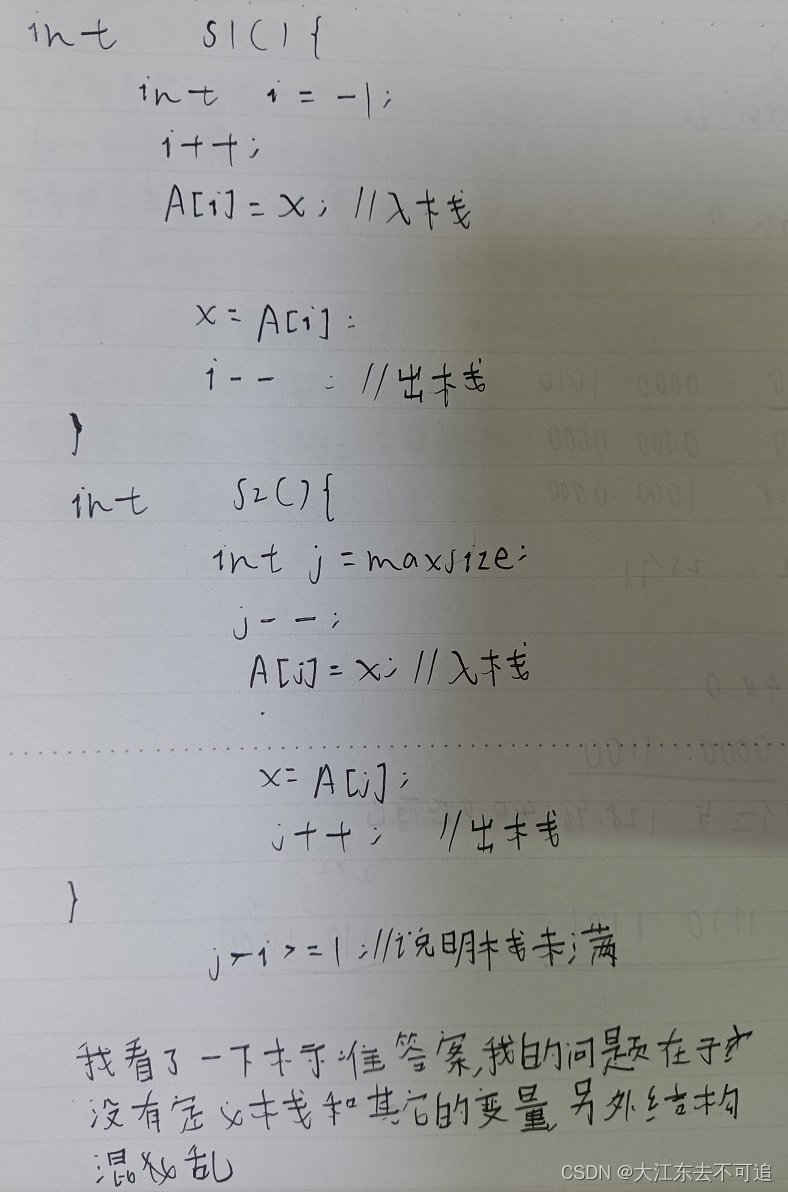 int S1(){
int i = -1;
i++;
A[i] = x; //入栈
x = A[i];
i-- ; //出栈
}
int S2(){
int j = maxsize;
j--;
A[j] = x; //入栈
x = A[j];
j++; //出栈
}
j-i>=1; //说明栈未满
我看了一下标准答案,我的问题在于
没有定义栈和其它的变量,另外结构
混乱
CSDN @大江东去不可追